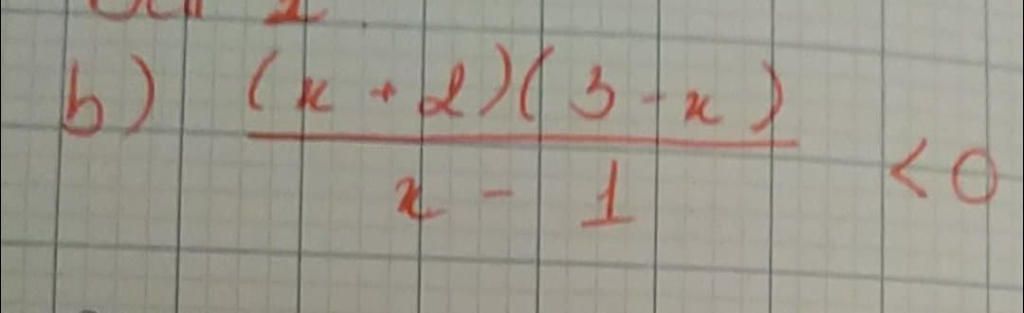 b) (x + 2)(3 - x)
x - 1 < 0